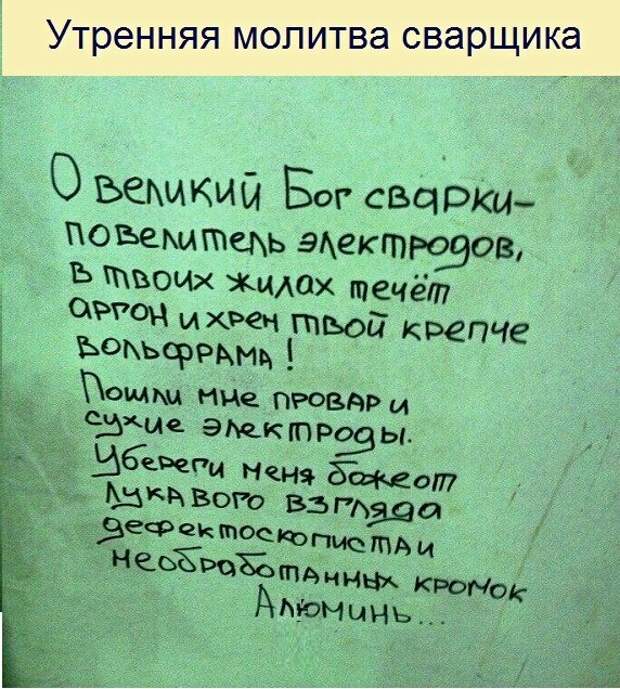 Утренняя молитва сварщика
О великий Бог сварки-
повелитель электродов,
в твоих жилах течёт
аргон и хрен твой крепче
вольфрама!
Пошли мне провар и
сухие электроды.
Убереги меня боже от
лукавого взгляда
дефектоскописта и
необработанных кромок
Алюминь...